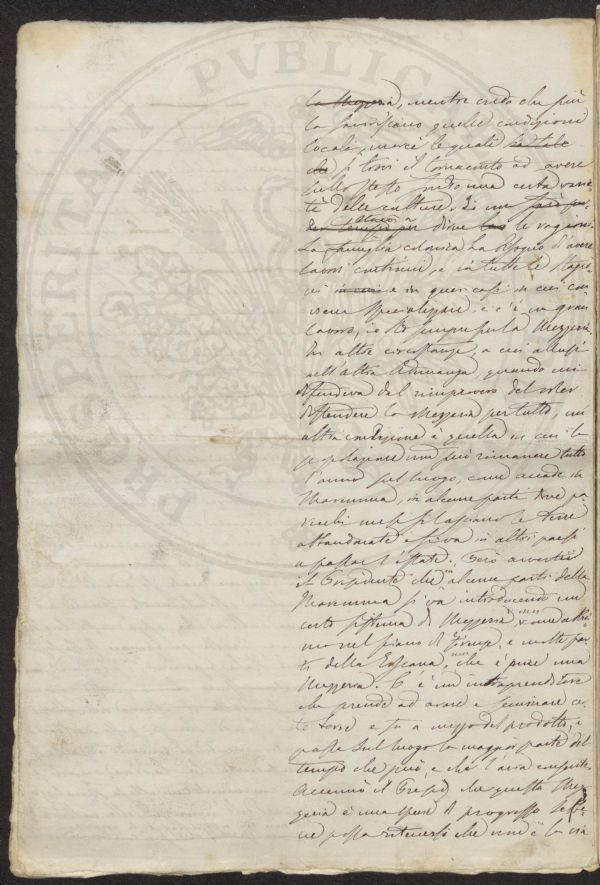 la Mezzeria, mentre credo che più
la favoriscano quelle condizioni
locali, mercè le quali
si trovi il tornaconto ad avere
sullo stesso fondo una certa varie
tà delle culture, di un
dirne le ragioni.
La famiglia colonica ha bisogno d'avere
lavori continui, e in tutte le stagio
ni in quei casi in cui con
viene specializzare e c'è un gran
lavoro, per la Mezzeria.
In altre circostanze, a cui allusi
nell'altra Adunanza, quando mi
difendeva dal rimprovero del voler
distendere la Mezzeria per tutto, un
altra condizione è quella in cui la
popolazione non può rimanere tutto
l'anno sul luogo, come accade in
Maremma, in alcune parte dove pa
recchi mesi si lasciano le terre
abbandonate e si va in altri paesi
a passar l'estate. Però avvertii
il Presidente che in alcune parti della
Maremma si va introducendo un
certo sistema di Mezzeria come abbia
mo nel piano di Firenze, e molte par
ti della Toscana, che è pure una
Mezzeria. C'è un intraprenditore
che prende ad arare e seminare
te terre e fa a mezzo del prodotto, e
passa sul luogo la maggior parte del
tempo che può, e che l'aria
Accennò il Presid. che questa Mez
zeria è una specie di progresso sebbe
ne possa ritenersi che non è la via